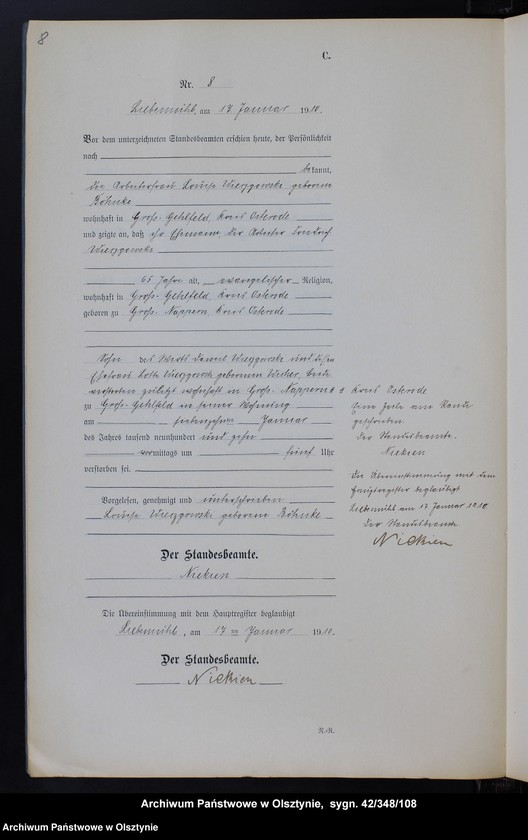 8
C.
Nr. 8
Liebemühl, am 17 Januar 1910.
Vor dem unterzeichneten Standesbeamten erschien heute, der Persönlichkeit
nach
bekannt,
die Arbeiterfrau Louise geborene
Böhnke
wohnhaft in Groß-Gehlfeld, Kreis Osterode
und zeigte an, daß ihr Ehemann, der Arbeiter
65 Jahre alt, evangelischer Religion,
wohnhaft in Groß-Gehlfeld, Kreis Osterode
geboren zu Groß-Nappern, Kreis Osterode
Sohn des und dessen
Ehefrau geborenen beide
verstorben zuletzt wohnhaft in Groß-Nappern Kreis Osterode
zu Groß-Gehlfeld in seiner Wohnung
am siebenzehnten Januar
des Jahres tausend neunhundert und zehn
vormittags um fünf Uhr
verstorben sei.
Vorgelesen, genehmigt und unterschrieben
Louise geborene Böhnke
Der Standesbeamte.
Niekien
Die Übereinstimmung mit dem Hauptregister beglaubigt
Liebemühl, am 17 ten Januar 1910.
Der Standesbeamte.
Niekien
am Rande
geschrieben.
Der Standesbeamte.
Niekien
Die Übereinstimmung mit dem
Hauptregister beglaubigt
Liebemühl am 17 Januar 1910.
Der Standesbeamte
Niekien
N.-R.
Archiwum Państwowe w Olsztynie, sygn. 42/348/108
Archiwum Państwowe w Olsztynie